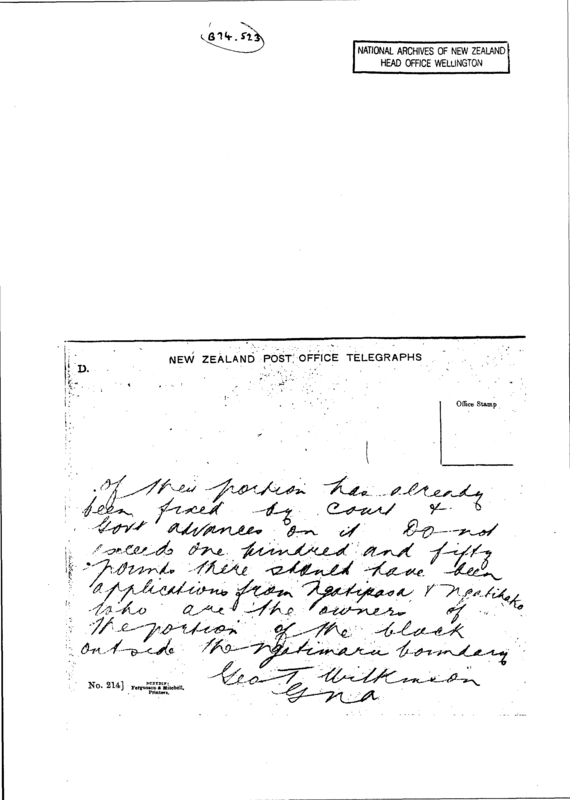 B74.523
NATIONAL ARCHIVES OF NEW ZEALAND
HEAD OFFICE WELLINGTON
D.
NEW ZEALAND POST OFFICE TELEGRAPHS
Office Stamp
of their portion has already
been fixed by Court &
Govt advances on it Do not
exceeds one hundred and fifty
pounds there should have been
applications from Ngatipaoa & Ngatihako
who are the owners of
the portion of the block
outside the Ngatimaru boundary
Geo T Wilkinson
G n a
No. 214]
Ferguson & Mitchell,
Printers,